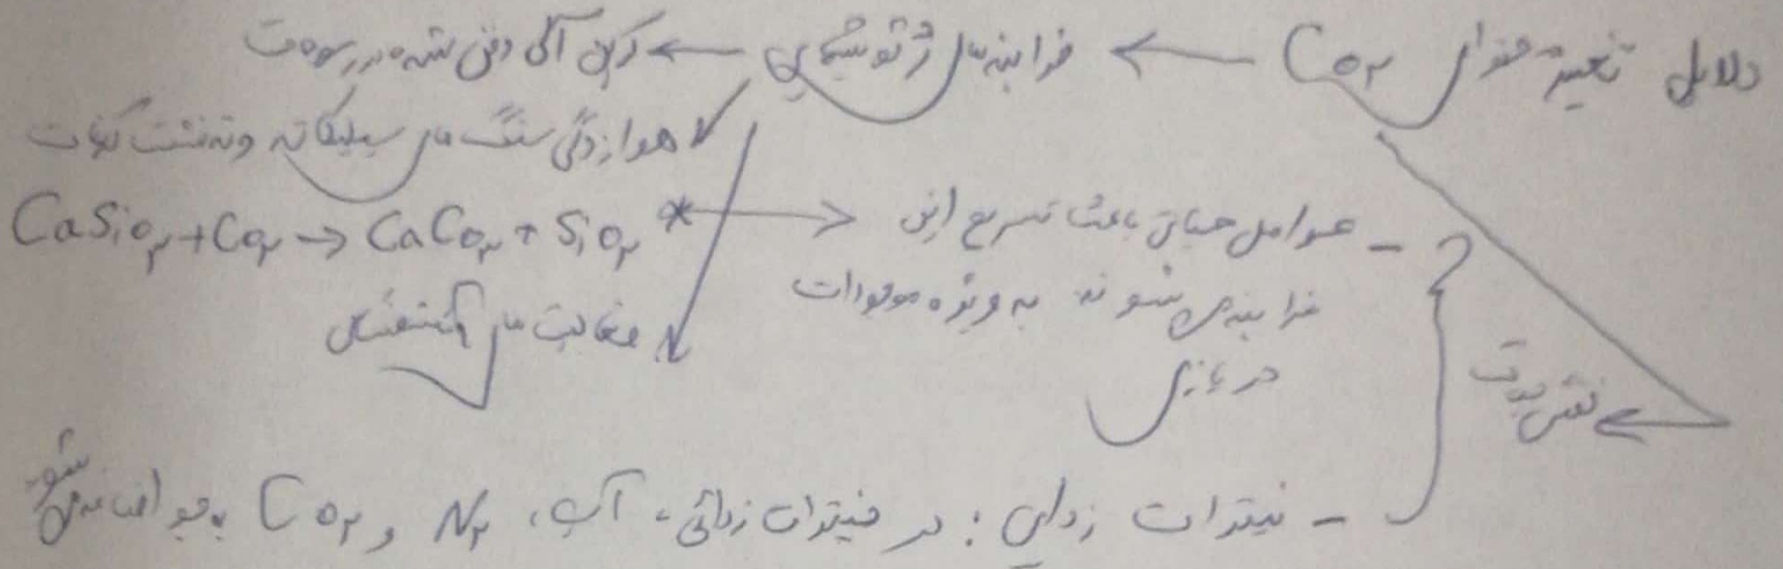 دلایل تغییر مقدار CO₂ ← فرایندهای ژئوشیمیایی ← کربن آلی دفن شده در رسوبات
هوازدگی سنگ های سیلیکاته و ته نشست کربنات
CaSiO₃ + CO₂ → CaCO₃ + SiO₂ *
فعالیت های آتشفشانی
نقش حیات
- عوامل حیاتی باعث تسریع این
فرایند می شوند به ویژه موجودات
دریازی
- نیترات زدایی : در نیترات زدائی، آب، N₂ و CO₂ به جو اضافه می شود